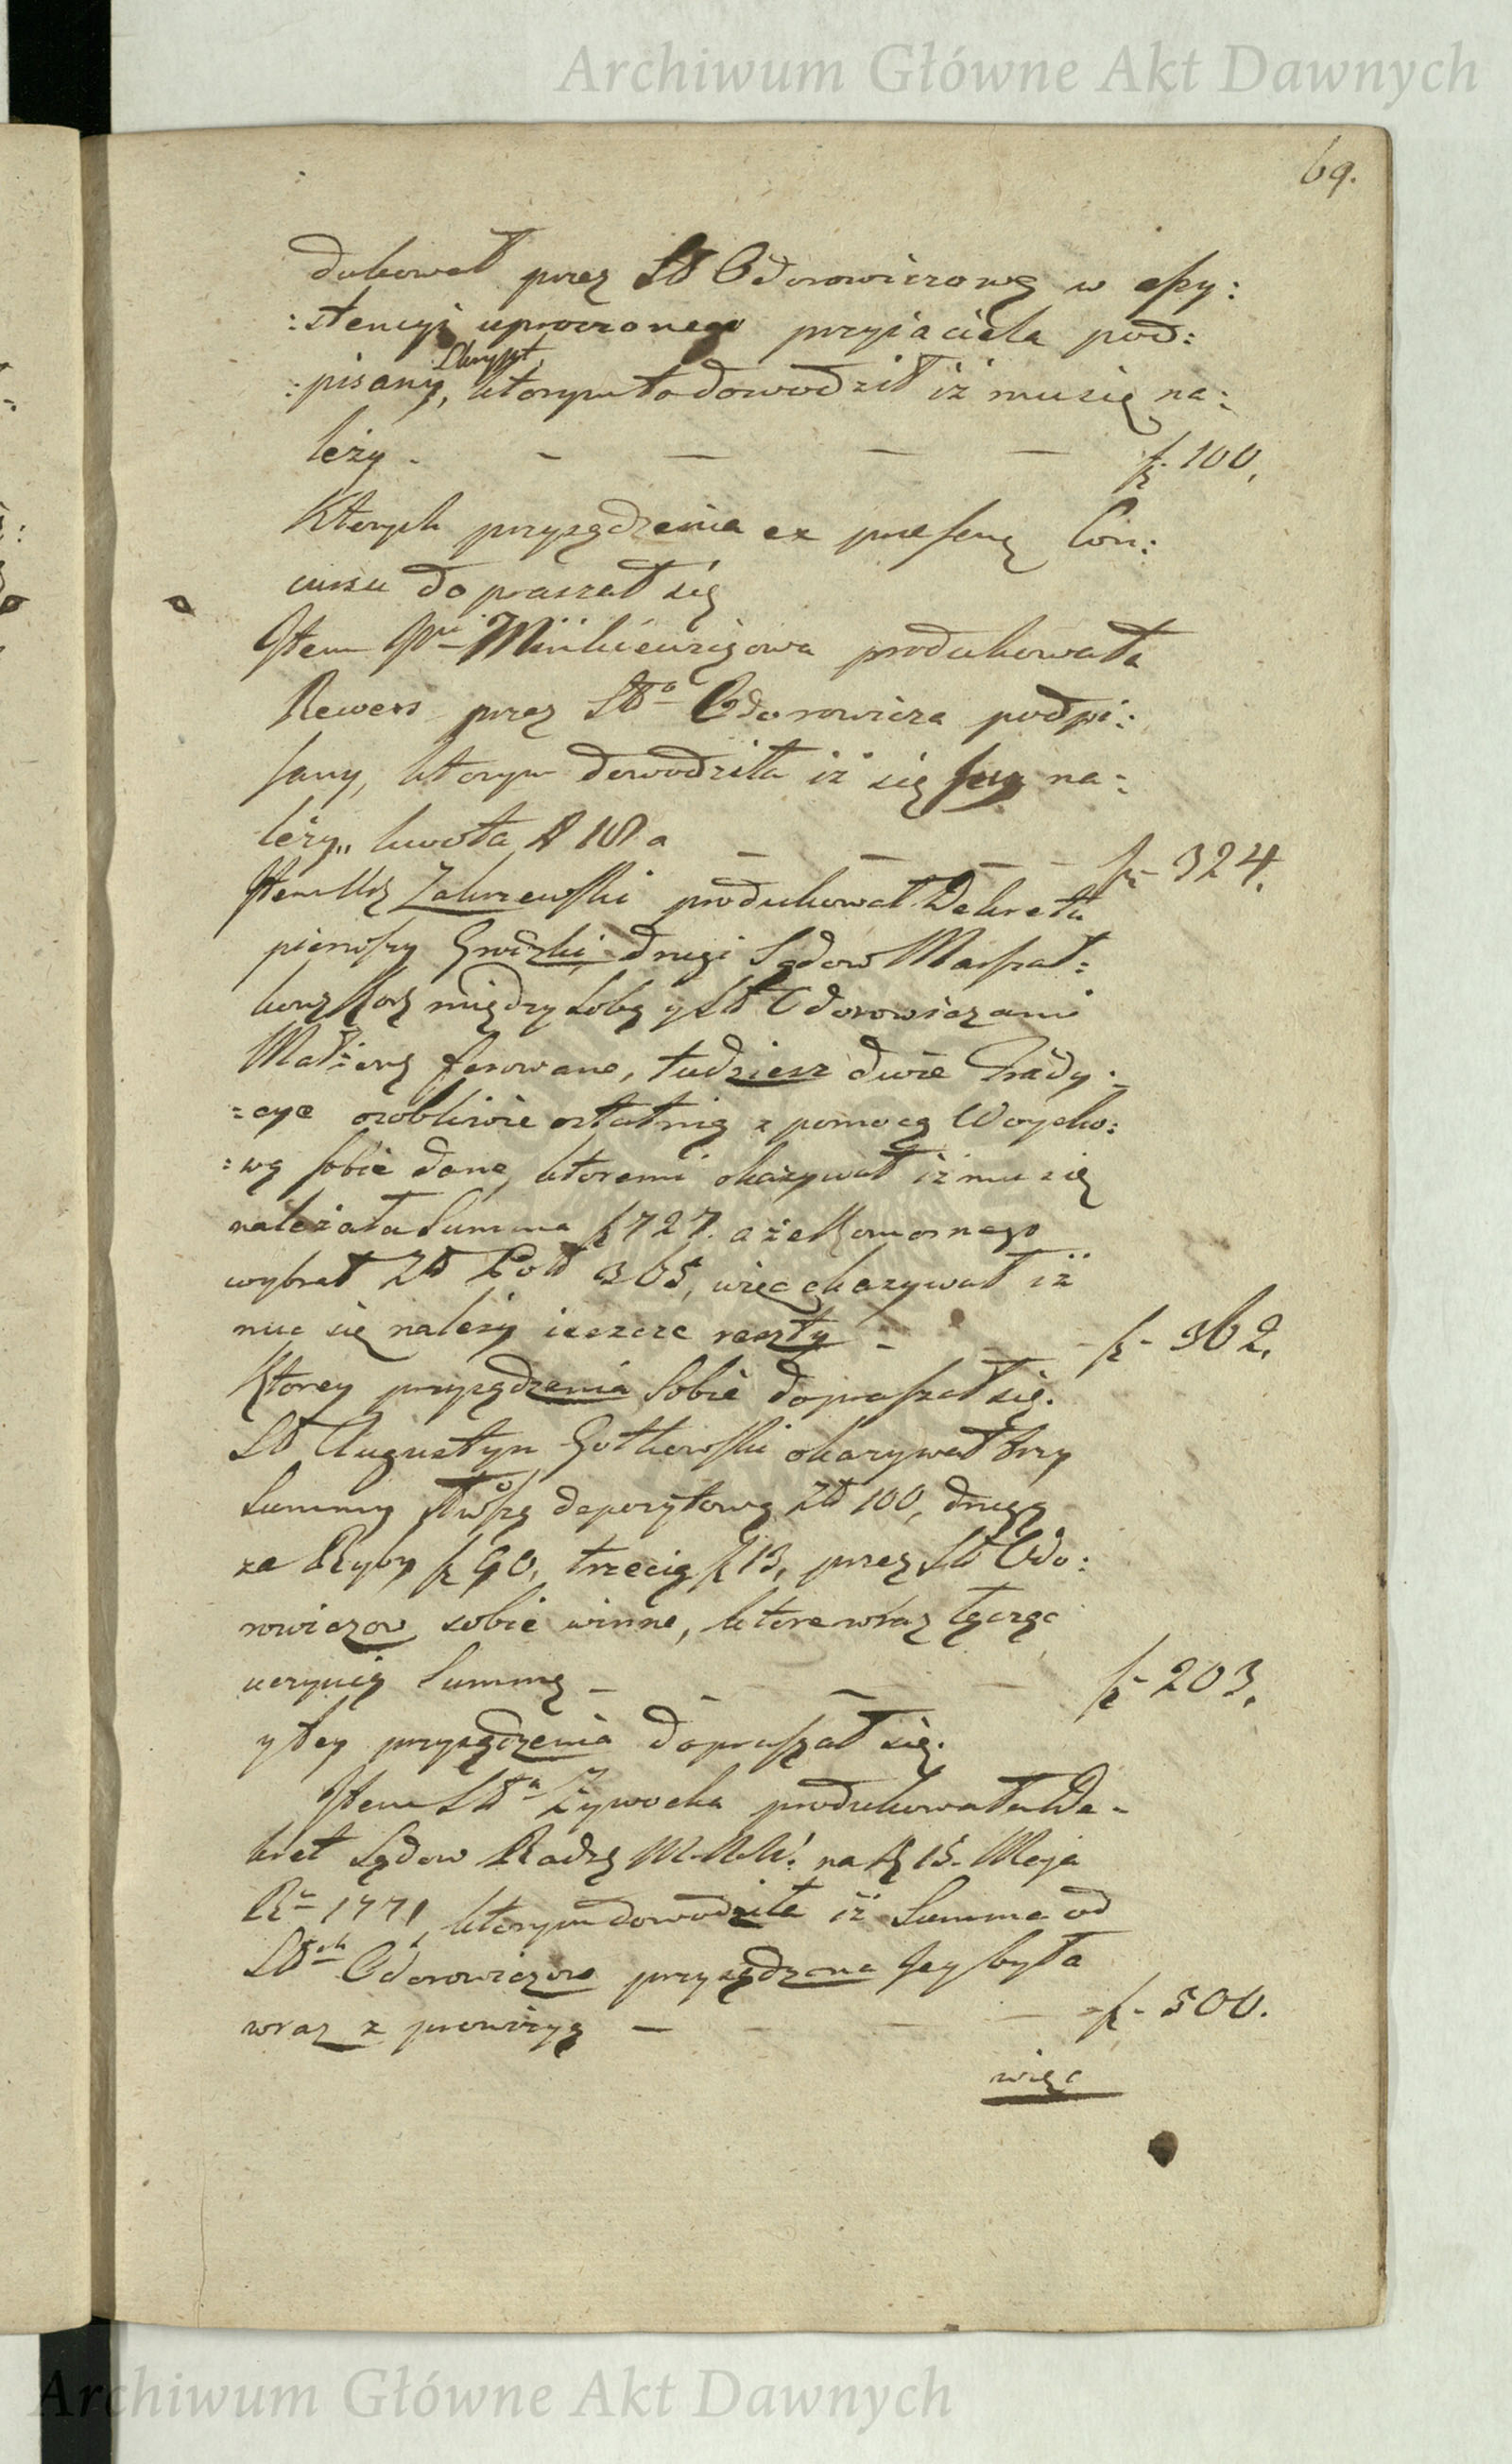 Archiwum Główne Akt Dawnych
69.
dukował przez Sł Odorowiczową w assy:
:stencyi uproszonego przyiaciela pod:
Skrypt
:pisany, ktorym to dowodził iż mu się na:
leży - - - - - f. 100.
Ktorych przysądzenia ex Con:
cursu dopraszał się
Item Minkiewiczowa produkowała
Rewers przez Sł Odorowicza podpi:
sany, ktorym dowodziła iż się Jey na:
leży kwota - - - - f. 324.
Item Zakrzewski produkował Dekreta
pierwszy Grodzki, drugi Sądow Marszał:
między sobą y Sł Odorowiczami
Małż: ferowane, tudziesz dwie Trady:
:cye osobliwie ostatnią z pomocą Woysko:
:wą sobie dane, ktoremi okazywał iż mu się
należała Summa f 727. a że Komornego
wybrał Zł Pol 365, więc okazywał iż
mu się należy ieszcze reszty - - - f. 362.
Ktorey przysądzenia sobie dopraszał się.
Sł Augustyn Gotkowski okazywał trzy
Summy depozytową Zł 100, drugą
za Ryby f 90, trzecią f 13, przez Sł Odo:
rowiczow sobie winne, ktore wraz łącząc
uczynią Summę - - - - f. 203.
y tey przysądzenia dopraszał się.
Item Sła Żywocka produkowała De-
kret Sądow Radz M. na 15. Maja
Ru 1771, ktorym dowodziła iż Summa od
Sł Odorowiczow przysądzona Jey była
wraz z prowizyą - - - - f. 500.
więc
Archiwum Główne Akt Dawnych